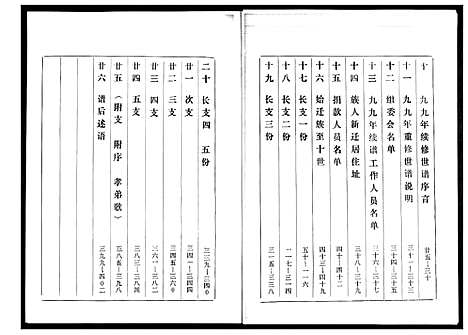 十 九九年续修世谱序言 廿五—三十
十一 九九年重修世谱说明
十二 组委会名单 三十三—三十四
十三 九九年续谱工作人员名单 三十六—三十七
十四 族人新迁居住址 四十三—四十九
十五 捐款人员名单 四十—四十二
十六 始迁族至十世
十七 长支一份 五十一—
十八 长支二份 一一七—
十九 长支三份 三一五—三三八
二十 长支四 五份 三三九—三四〇
廿一 次支 三四一—
廿二 三支 三四五—三六〇
廿三 四支 三六一—三八二
廿四 五支 三八三—三八四
廿五 （附支 附序 孝弟歌） 三八五—三九八
廿六 谱后述语 三九九—四〇二